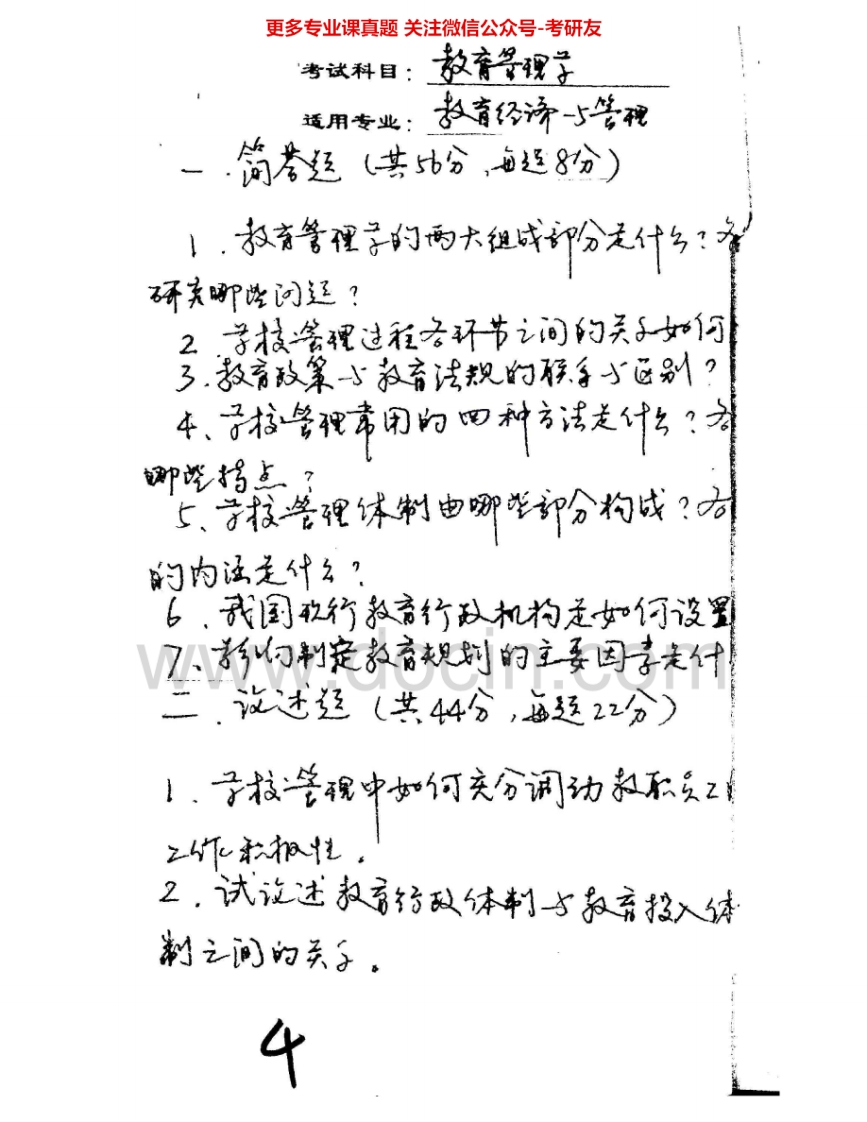 更多专业课真题 关注微信公众号-考研友
考试科目: 教育管理学
适用专业: 教育经济与管理
一.简答题(共56分,每题8分)
1.教育管理学的两大组成部分是什么?各
研究哪些问题?
2.学校管理过程各环节之间的关系如何
3.教育政策与教育法规的联系与区别?
4、学校管理常用的四种方法是什么?各
哪些特点?
5、学校管理体制由哪些部分构成?各
的内涵是什么?
6.我国现行教育行政机构是如何设置
7、影响制定教育规划的主要因素是什
www.docin.com
二.论述题(共44分,每题22分)
1.学校管理中如何充分调动教职员工
工作积极性.
2.试论述教育行政体制与教育投入体
制之间的关系.
4